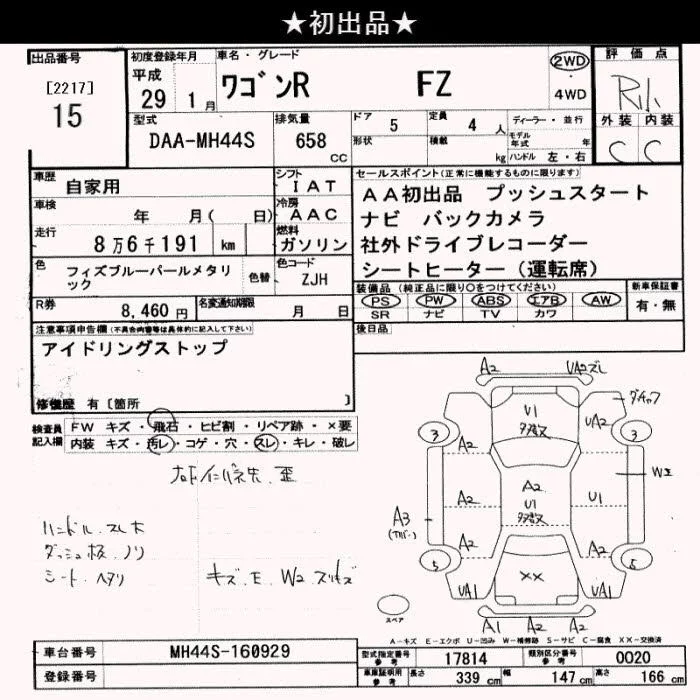 ★初出品★
出品番号
[2217]
15
初度登録年月
平成
29 1月
車名・グレード
ワゴンR FZ
2WD
・
4WD
評価点
外装 内装
C C
型式
DAA-MH44S
排気量
658
CC
ドア
5
定員
4 人
形状
積載
kg
ディーラー・並行
モデル
年式 年
ハンドル 左・右
車歴
自家用
シフト
IAT
車検
年 月( 日)
冷房
AAC
走行
8万6千191 km
燃料
ガソリン
色
フィズブルーパールメタリ
ック
色替
色コード
ZJH
R券
8,460 円
名変通知期限
月 日
セールスポイント(正常に機能するものに限ります)
AA初出品 プッシュスタート
ナビ バックカメラ
社外ドライブレコーダー
シートヒーター(運転席)
装備品(純正品に限り○をつけてください)
PS PW ABS エアB AW
SR ナビ TV カワ
新車保証書
有・無
後日品
注意事項申告欄(不具合内容等は具体的に記入して下さい)
アイドリングストップ
修復歴 有〔箇所 〕
検査員
記入欄
FW キズ・飛石・ヒビ割・リペア跡・×要
内装 キズ・汚レ・コゲ・穴・スレ・キレ・破レ
ハンドル.スレ大
ダッシュ板.ノリ
シート.ヘタリ
キズ.E.W2.スリキズ
A2 UA2ズレ
U1
多数ス
3 3
A2 UA2
ダキャフ
A2
U1
多数ス
A2 U1
WE
A3
A2 A2
5 5
UA1 XX UA1
A1 A2 A2
スペア
A-キズ E-エクボ U-凹み W-補修跡 S-サビ C-腐食 XX-交換済
車台番号
MH44S-160929
登録番号
型式指定番号
参考
17814
類別区分番号
参考
0020
車庫証明用
参考
長さ 339 cm
幅 147 cm
高さ 166 cm